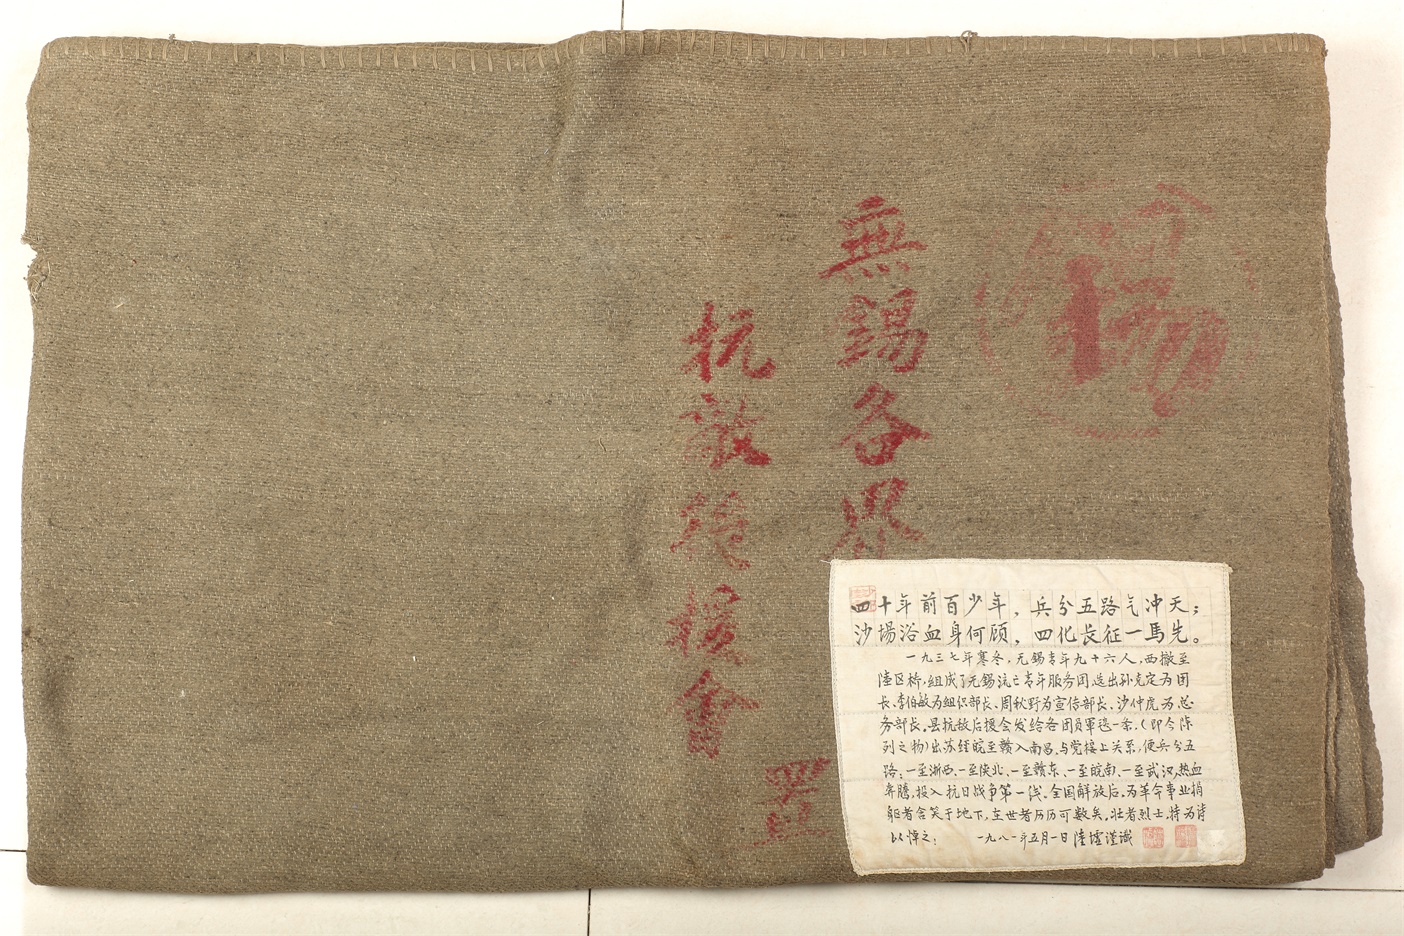 錫
無錫各界
抗敵後援會
置
四十年前百少年，兵分五路气冲天；
沙場浴血身何顾，四化長征一馬先。
一九三七年寒冬，无錫青年九十六人，西撤至
陸区桥，组成了无錫流亡青年服务团，选出孙克定为团
长、李伯敏为组织部长、周秋野为宣传部长、沙仲虎为总
务部长，县抗敌后援会发给各团员軍毯一条，（即今陈
列之物）出苏经皖至赣入南昌，与党接上关系，便兵分五
路；一至浙西、一至陕北、一至赣东、一至皖南、一至武汉，热血
奔腾，投入抗日战争第一线。全国解放后，为革命事业捐
躯者含笑于地下，在世者历历可数矣，壮者烈士，特为诗
以悼之；
一九八一年五月一日 陸墟謹識